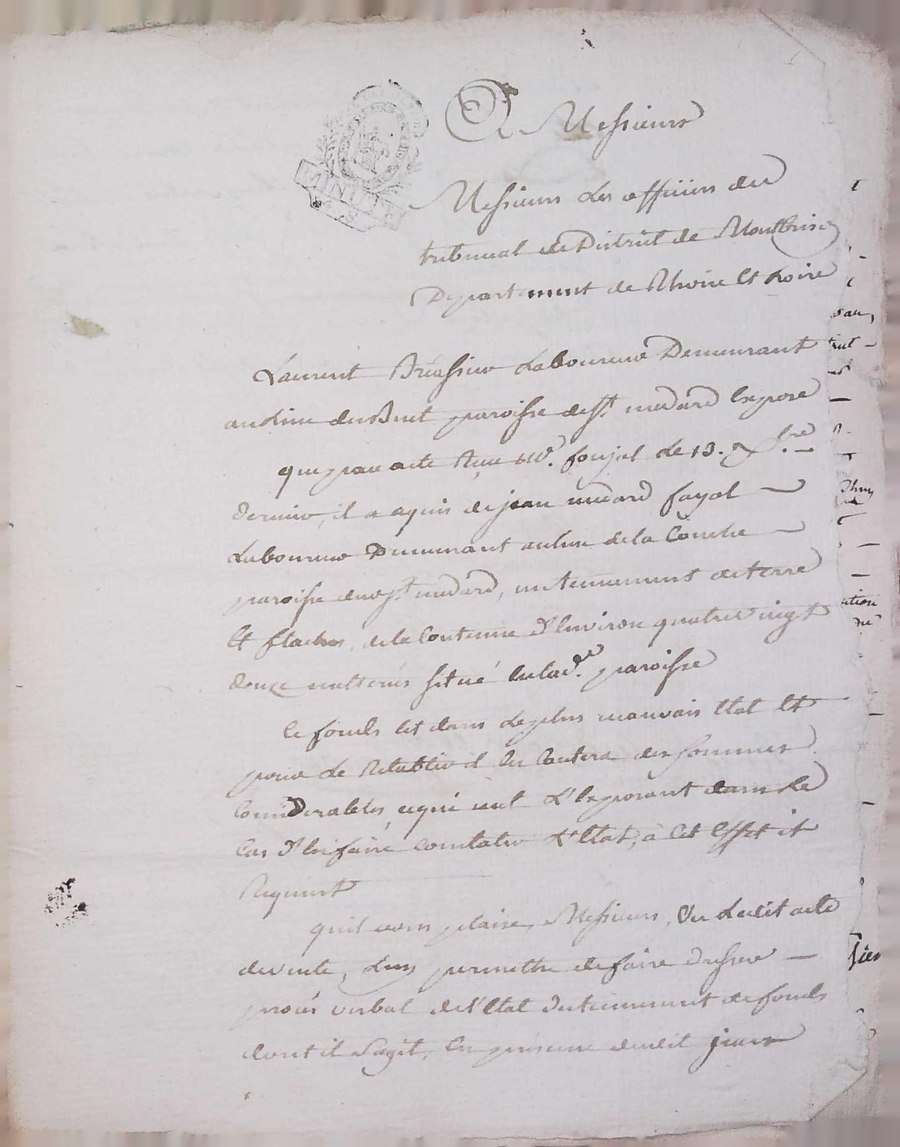 A Messieurs
Messieurs Les officiers du
tribunal de District de Montbrison
Departement de Rhone Et Loire
Laurent Bréassier Laboureur Demeurant
au Lieu du Buet paroisse de St. medard Expose
que par acte Reçu Me. foujol Le 13. 7bre
dernier, il a aquis de jean medard fayol
Laboureur Demeurant au lieu de la Conche
paroisse dudt. St. medard, un tennement de terre
Et flaches, de la Contenue d'Environ quatre vingt
douze metterés situé En lade. paroisse
Ce fonds Est dans Le plus mauvais Etat Et
pour Le Retablir il En Coutera des sommes
Considerables, ce qui met L'Exposant dans Le
Cas d'En faire Constater L'Etat, à Cet Effet il
Requiert
qu'il vous plaise, Messieurs, Vu Ledit acte
de vente, Luy permettre de faire dresser
procès verbal de L'Etat du tennement de fonds
dont il S'agit, En presence dudit jean